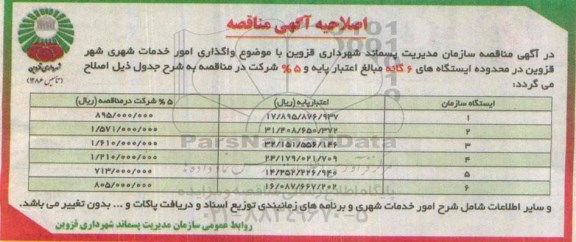 اصلاحیه آگهی مناقصه
در آگهی مناقصه سازمان مدیریت پسماند شهرداری قزوین با موضوع واگذاری امور خدمات شهری شهر
قزوین در محدوده ایستگاه های ۶ گانه مبالغ اعتبار پایه و ۵ % شرکت در مناقصه به شرح جدول ذیل اصلاح
می گردد:
شهرداری قزوین
ایستگاه سازمان اعتبارپایه (ریال) ۵ % شرکت درمناقصه (ریال)
۱ ۱۷/۸۹۵/۸۷۶/۹۳۷ ۸۹۵/۰۰۰/۰۰۰
۲ ۳۱/۴۰۸/۶۵۰/۳۷۲ ۱/۵۷۱/۰۰۰/۰۰۰
۳ ۳۲/۱۵۱/۵۵۶/۱۴۶ ۱/۶۱۰/۰۰۰/۰۰۰
۴ ۲۴/۱۷۹/۰۲۱/۷۰۹ ۱/۲۱۰/۰۰۰/۰۰۰
۵ ۱۴/۲۵۲/۲۲۶/۹۴۰ ۷۱۳/۰۰۰/۰۰۰
۶ ۱۶/۰۸۷/۶۶۷/۲۰۲ ۸۰۵/۰۰۰/۰۰۰
و سایر اطلاعات شامل شرح امور خدمات شهری و برنامه های زمانبندی توزیع اسناد و دریافت پاکات و ... بدون تغییر می باشد.
روابط عمومی سازمان مدیریت پسماند شهرداری قزوین
ParsNamadData
۰۲۱-۸۸۳۴۹۶۷۰-۵